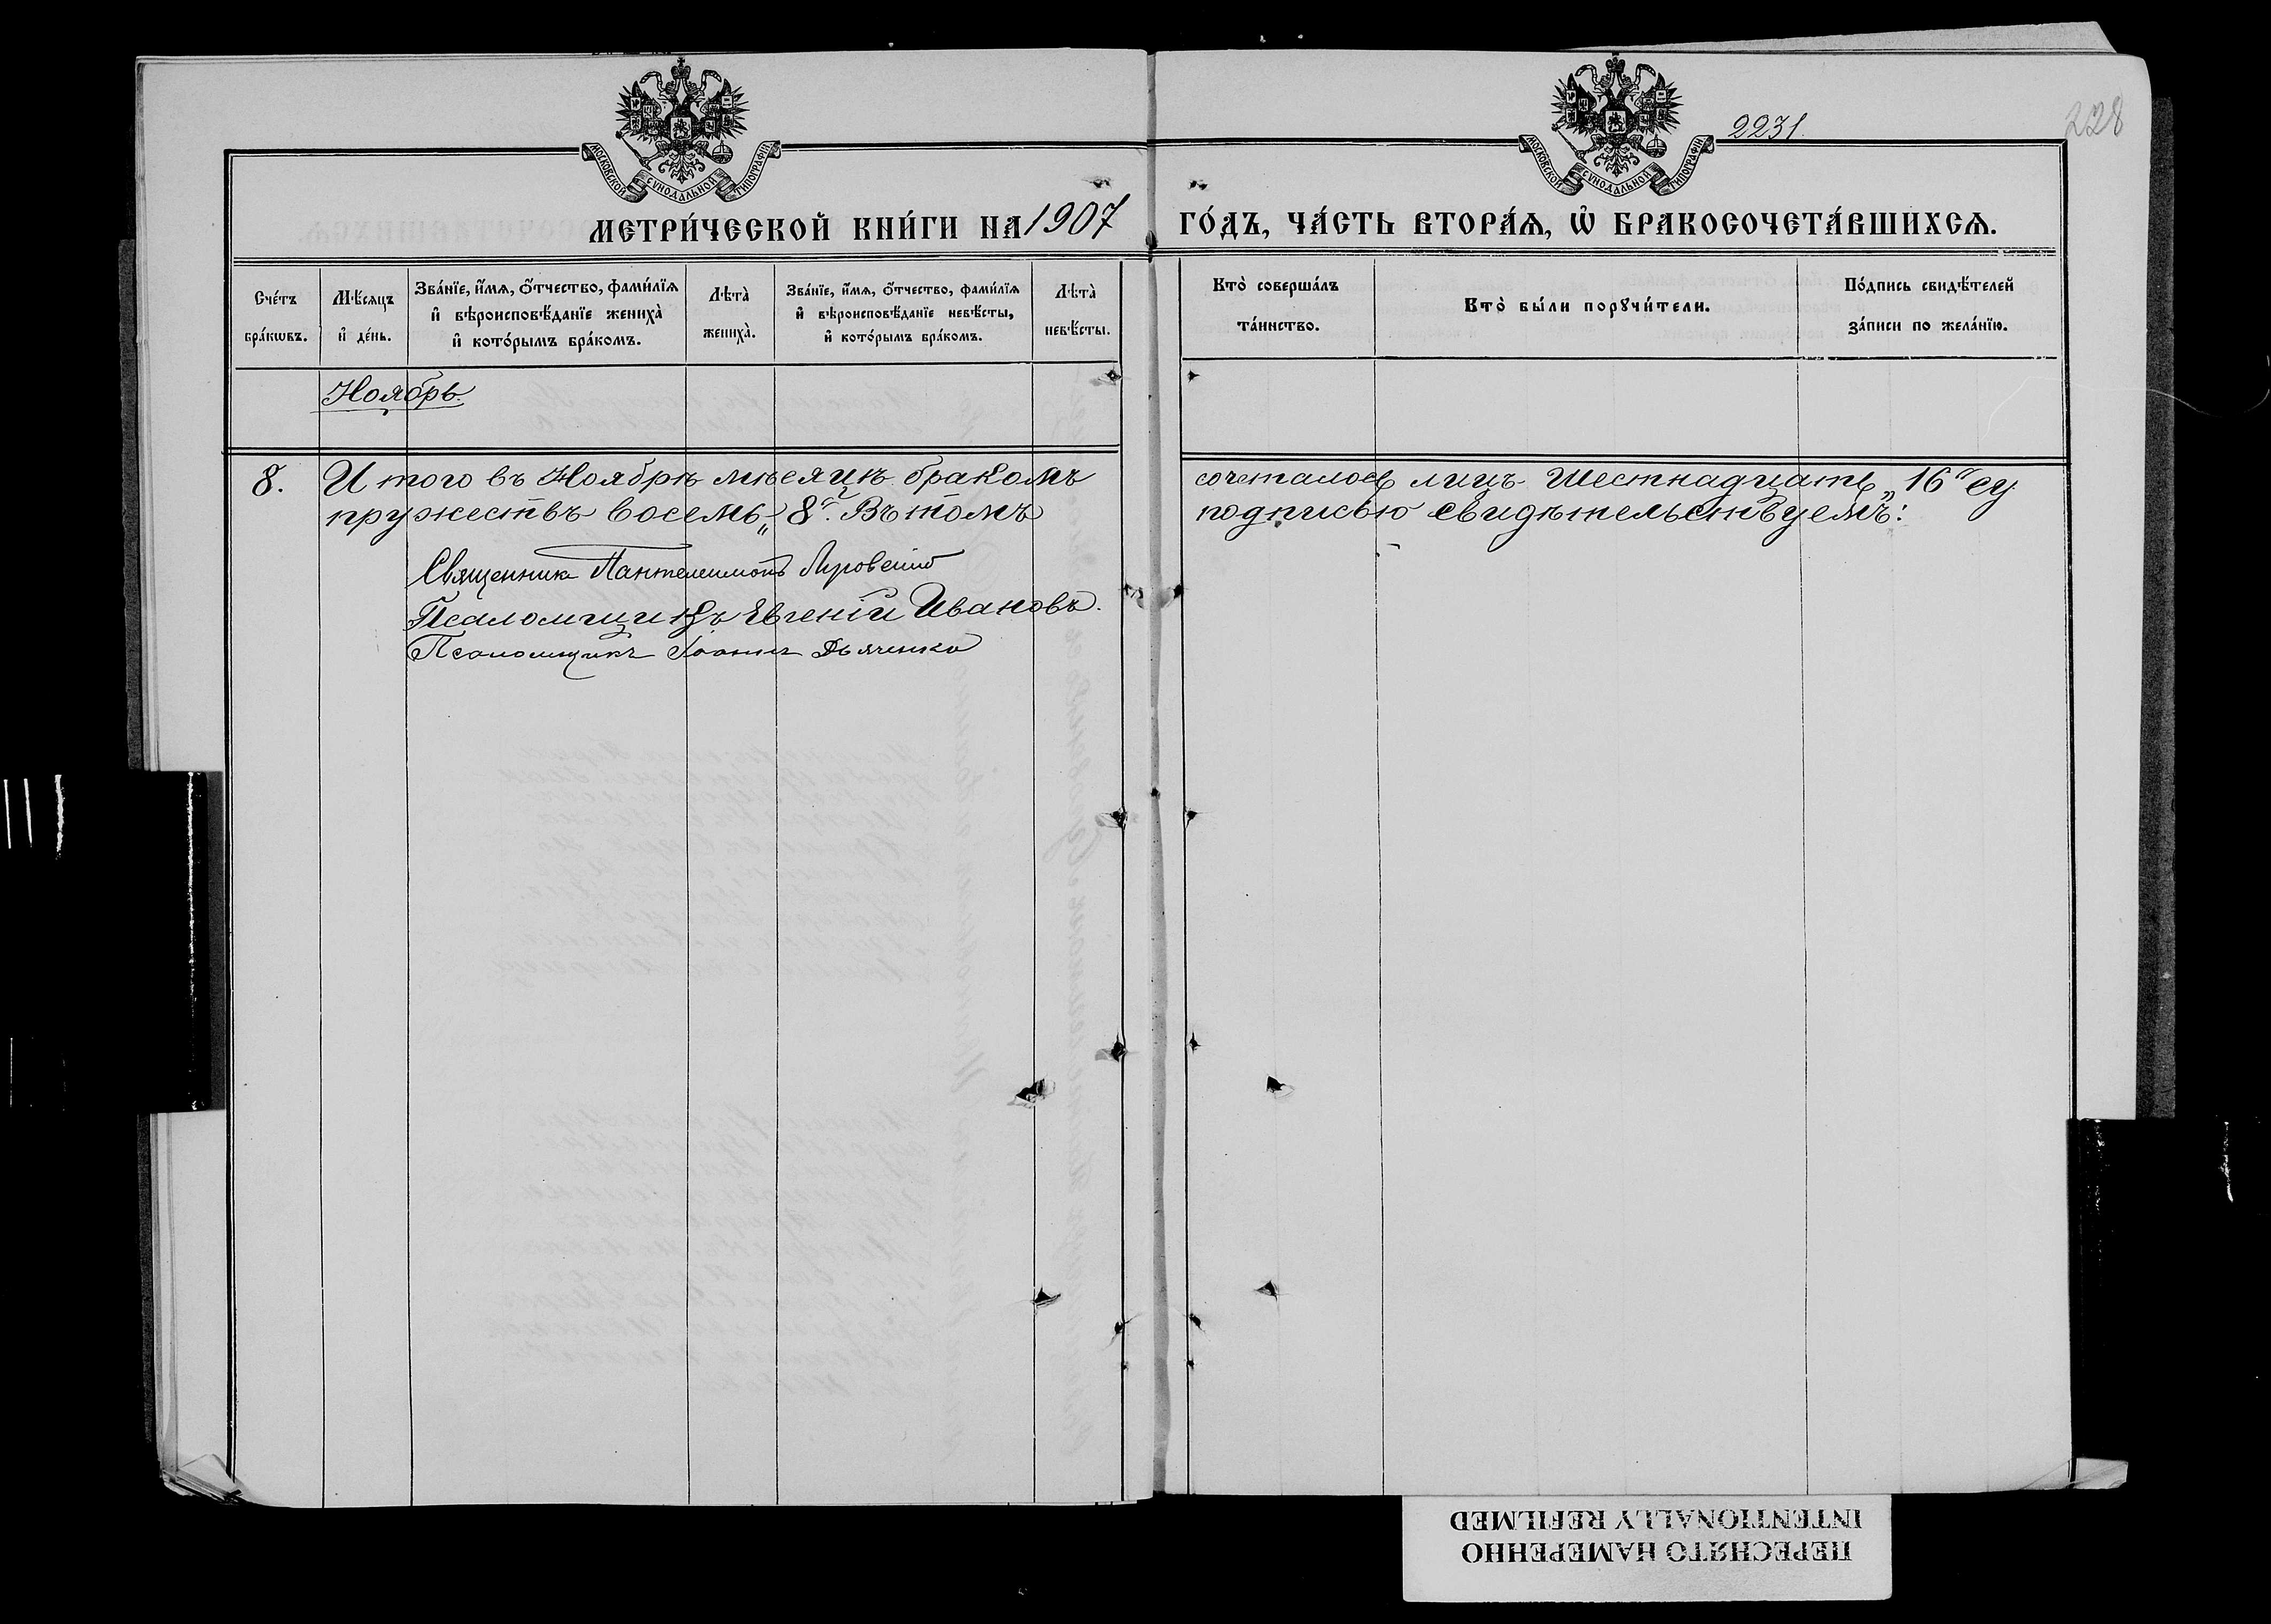 МОСКОВСКОЙ СѴНОДАЛЬНОЙ ТИПОГРАФІИ
МОСКОВСКОЙ СѴНОДАЛЬНОЙ ТИПОГРАФІИ
2231.
228
МЕТРИ́ЧЕСКОЙ КНИ́ГИ НА 1907 ГО́ДЪ, ЧА́СТЬ ВТОРА́Ѧ, Ѽ БРАКОСОЧЕТА́ВШИХСѦ.
Сче́тъ бра́кѡвъ.
Мѣ́сяцъ и҆ де́нь.
Зва́нїе, и҆́мѧ, о҆́тчество, фами́лїѧ и҆ вѣроисповѣ́данїе жениха̀ и҆ кото́рымъ бра́комъ.
Лѣта̀ жениха̀.
Зва́нїе, и҆́мѧ, о҆́тчество, фами́лїѧ и҆ вѣроисповѣ́данїе невѣ́сты, и҆ кото́рымъ бра́комъ.
Лѣта̀ невѣ́сты.
Кто̀ соверша́лъ та́инство.
Кто̀ бы́ли порꙋчи́тели.
По́дпись свидѣ́телей за́писи по жела́нїю.
Ноябрь.
8. И того въ Ноябрѣ мѣсяцѣ бракомъ сочеталось лицъ Шестнадцать „16" су
пружествъ восемь „8". Въ томъ подписью свидѣтельствуемъ:
Священникъ Пантелеимонъ
Псаломщикъ Евгеній Ивановъ.
Псаломщикъ Іоаннъ Дьяченко
ПЕРЕСНЯТО НАМЕРЕННО
INTENTIONALLY REFILMED